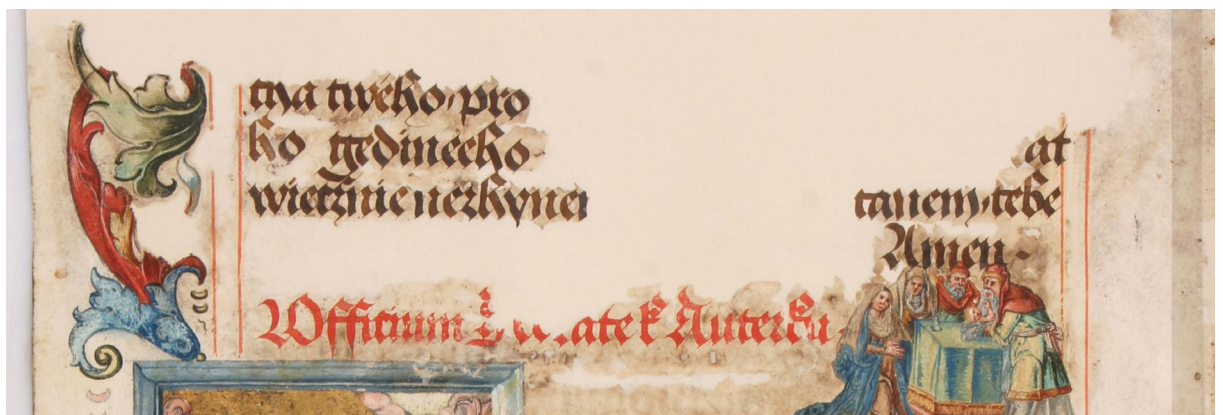 tna twého, pro
ho gedineeho at
wietznie nezhyne tanem, tebe
Amen
Officium ate k Auterku